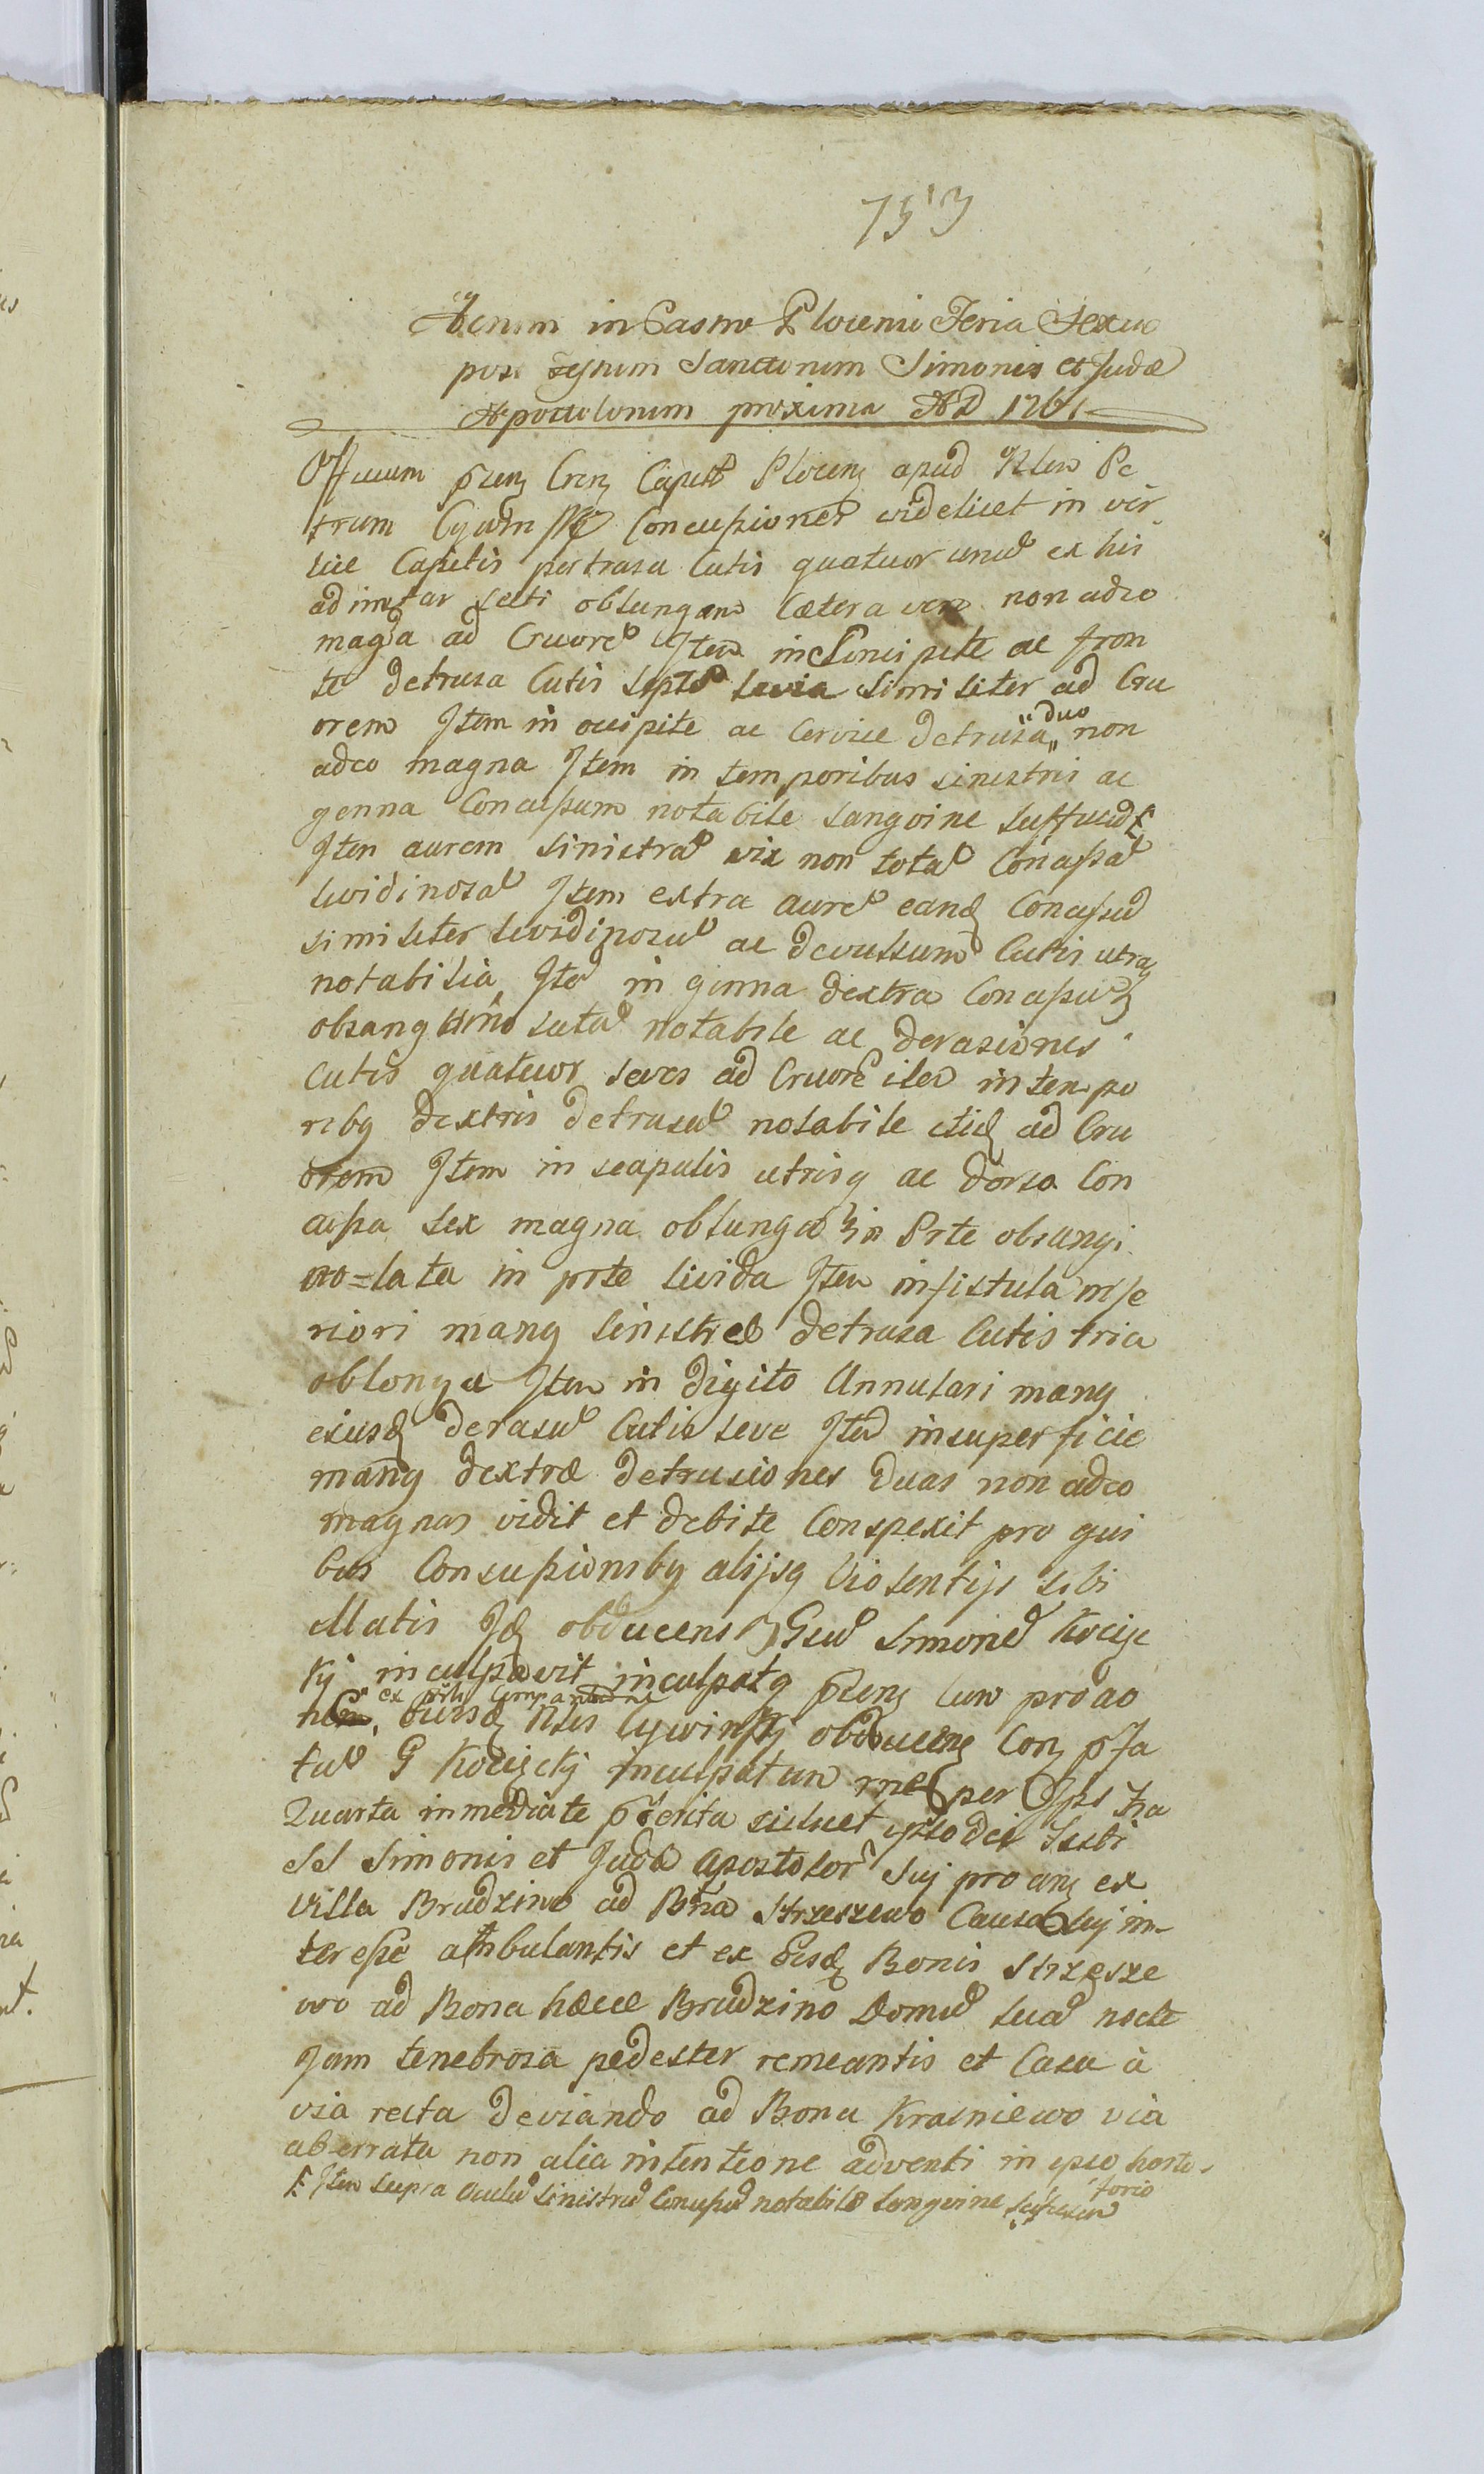 753
Actum in Castro Plocensi Feria Sexta
post festum Sanctorum Simonis et Judæ
Apostolorum proxima AD 1761
Officium pñens Cren Capit Plocens apud Nlem Pe
trum Cywinski Concussiones videlicet in ver
tice Capitis pertrasa Cutis quatuor unũ ex his
ad instar secti oblungam Cætera vero non adeo
magna ad Cruorẽ Item in Sincipite ac fron
te detrusa Cutis Septẽ levia similiter ad Cru
orem Item in occipite ac Cervice detrusa duo non
adeo magna Item in temporibus sinistris ac
genna Concussum notabile sangvine suffusũ
Item aurem sinistrã vix non totã Concussã
lividinosã Item extra aurẽ eandẽ Concussũ
similiter lividinosũ ac devulsum Cutis utraq
notabilia, Itẽ in genna dextra Concussũ
obsangvino latũ notabile ac derasiones
Cutis quatuor leves ad Cruorẽ itẽ in tempo
ribq dextris detrusũ notabile itidẽ ad Cru
orem Item in scapulis utrisq ac dorso Con
cussa sex magna oblunga in Prte obsangvi
no=lata in prte livida Item in fistula infe
riori manq sinistræ detrusa Cutis tria
oblonga Item in digito Annulari manq
eiusdẽ derasũ Cutis leve Itẽ in superficie
manq dextræ detrusiones duas non adeo
magnas vidit et debite Conspexit pro qui
bus Concussionibq alijsq Violentijs sibi
illatis Idẽ obducens Gsũ Simonẽ Kocięc
kj inculpavit inculpatq pñens
ex Comparitione
eiusdẽ Nlis Cywinskj obducens Con pfa
tũ G Kocięckj inculpatum per
Quarta immediate pterita scilicet ipso die festi
SS Simonis et Judæ Apostolor Suj pro ex
villa Brudzino ad Bona Strzeszewo Causa Suj in
teresse ambulantis et ex eisdẽ Bonis Strzesze
wo ad Bona hæcce Brudzino Domũ suã nocte
jam tenebrosa pedester remeantis et Casu à
via recta deviando ad Bona Krasniewo via
aberrata non alia intentione adventi in ipso horto
torio
Item supra oculũ sinistrũ Concussũ notabile sangvine suffusum